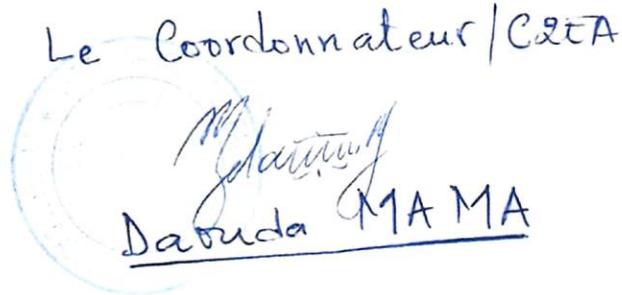 Le Coordonnateur/C2EA
Daouda MAMA